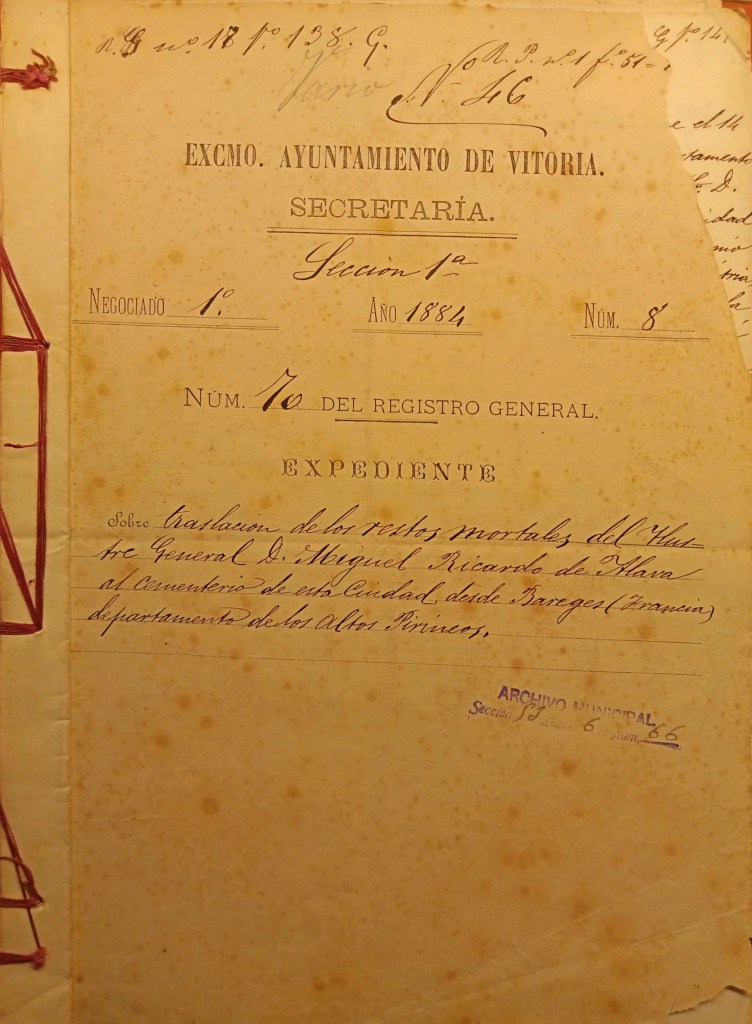 R. G nº 18 fº 138. G.
R. P. nº 1 fº 51
G fº 14
Vario Nº 46
EXCMO. AYUNTAMIENTO DE VITORIA.
SECRETARÍA.
Seccion 1ª
NEGOCIADO 1º. AÑO 1884 NÚM. 8
NÚM. 70 DEL REGISTRO GENERAL.
EXPEDIENTE
Sobre traslacion de los restos mortales del Ilus-
tre General D. Miguel Ricardo de Alava
al cementerio de esta Ciudad, desde Bareges (Francia)
departamento de los altos Pirineos.
ARCHIVO MUNICIPAL
Sección 53 6 Núm. 66
e el 14
tamento
D.
idad
mo
tria,
la